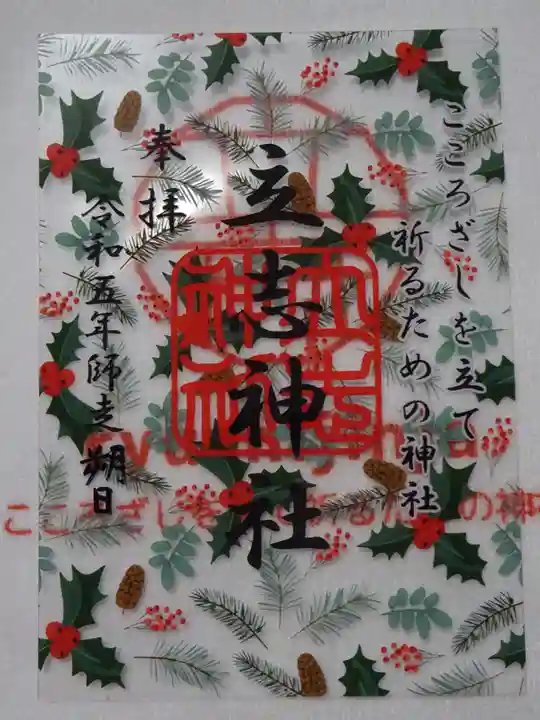 こころざしを立て
祈るための神社
立志神社
奉拝
令和五年師走朔日
立志神社
こころざしを